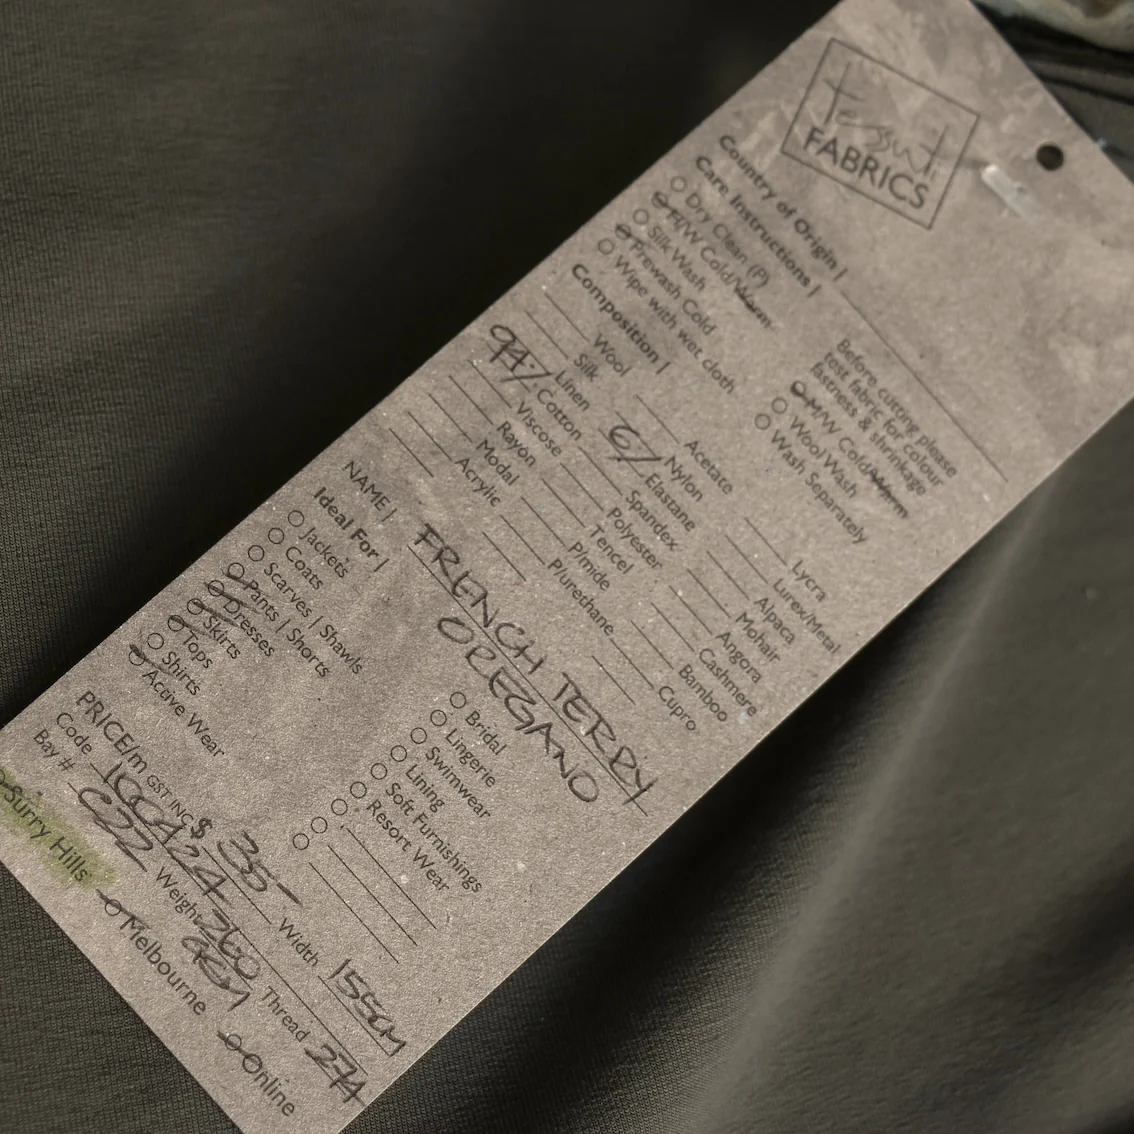 tessuti
FABRICS
Country of Origin |
Care Instructions |
Dry Clean (P)
H/W Cold/Warm
Silk Wash
Prewash Cold
Wipe with wet cloth
Before cutting please
test fabric for colour
fastness & shrinkage
M/W Cold/Warm
Wool Wash
Wash Separately
Composition |
Wool
Silk
Linen
94% Cotton
Viscose
Rayon
Modal
Acrylic
Acetate
Nylon
6% Elastane
Spandex
Polyester
Tencel
P/mide
P/urethane
Lycra
Lurex/Metal
Alpaca
Mohair
Angora
Cashmere
Bamboo
Cupro
NAME | FRENCH TERRY
OREGANO
Ideal For |
Jackets
Coats
Scarves | Shawls
Pants | Shorts
Dresses
Skirts
Tops
Shirts
Active Wear
Bridal
Lingerie
Swimwear
Lining
Soft Furnishings
Resort Wear
PRICE/m GST INC $ 35- Width 155CM
Code Weight 260 GSM Thread 274
Bay # C22
Surry Hills Melbourne Online